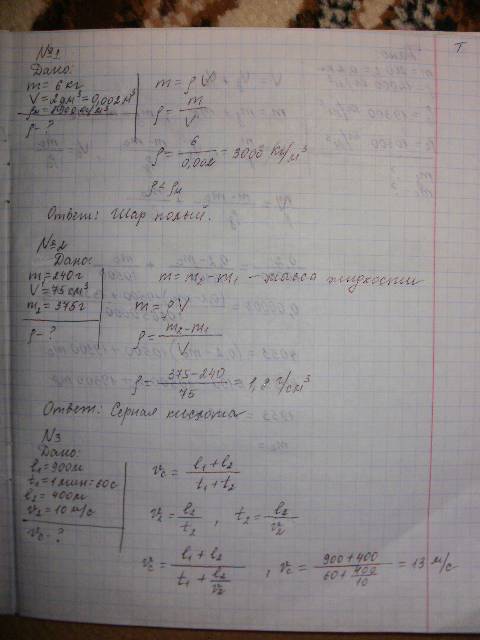 №1
Дано:
m = 6 кг
V = 2 дм³ = 0,002 м³
ρм = 8900 кг/м³
ρ - ?
m = ρV
ρ = m/V
ρ = 6/0,002 = 3000 кг/м³
ρ ≠ ρм
Ответ: Шар полый.
№2
Дано:
m₁ = 240 г
V = 75 см³
m₂ = 375 г
ρ - ?
m = m₂ - m₁ - масса жидкости
m = ρV
ρ = (m₂ - m₁)/V
ρ = (375 - 240)/75 = 1,8 г/см³
Ответ: Серная кислота
№3
Дано:
l₁ = 900 м
t₁ = 1 мин = 60 с
l₂ = 400 м
v₂ = 10 м/с
vc - ?
vc = (l₁ + l₂)/(t₁ + t₂)
v₂ = l₂/t₂ , t₂ = l₂/v₂
vc = (l₁ + l₂)/(t₁ + l₂/v₂) , vc = (900 + 400)/(60 + 400/10) = 13 м/с